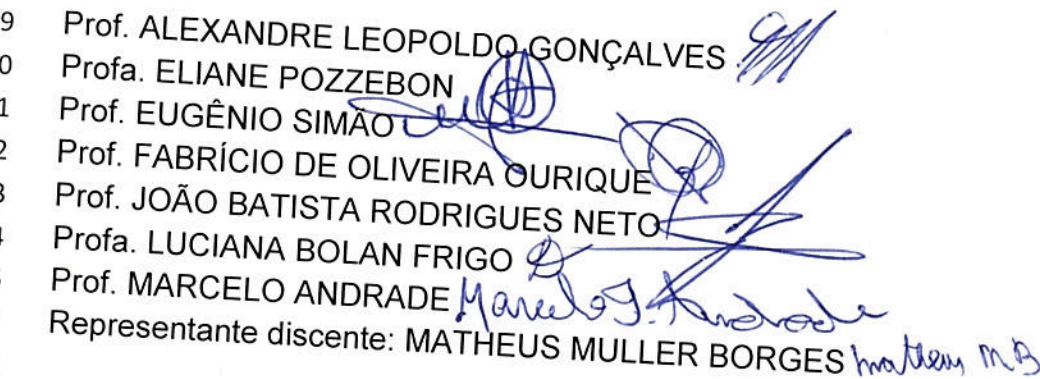 9 Prof. ALEXANDRE LEOPOLDO GONÇALVES
0 Profa. ELIANE POZZEBON
1 Prof. EUGÊNIO SIMÃO
2 Prof. FABRÍCIO DE OLIVEIRA OURIQUE
3 Prof. JOÃO BATISTA RODRIGUES NETO
4 Profa. LUCIANA BOLAN FRIGO
Prof. MARCELO ANDRADE Marcelo J. Andrade
Representante discente: MATHEUS MULLER BORGES Matheus M B